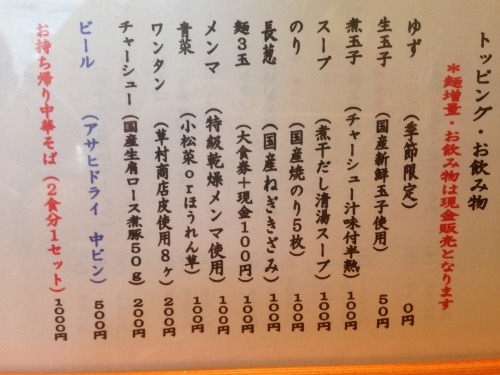 トッピング・お飲み物
*麺増量・お飲み物は現金販売となります
ゆず (季節限定) 0円
生玉子 (国産新鮮玉子使用) 50円
煮玉子 (チャーシュー汁味付半熟) 100円
スープ (煮干だし清湯スープ) 100円
のり (国産焼のり5枚) 100円
長葱 (国産ねぎきざみ) 100円
麺3玉 (大食券+現金100円) 100円
メンマ (特級乾燥メンマ使用) 100円
青菜 (小松菜orほうれん草) 100円
ワンタン (草村商店皮使用8ヶ) 200円
チャーシュー (国産生肩ロース煮豚50g) 200円
ビール (アサヒドライ 中ビン) 500円
お持ち帰り中華そば (2食分1セット) 1000円